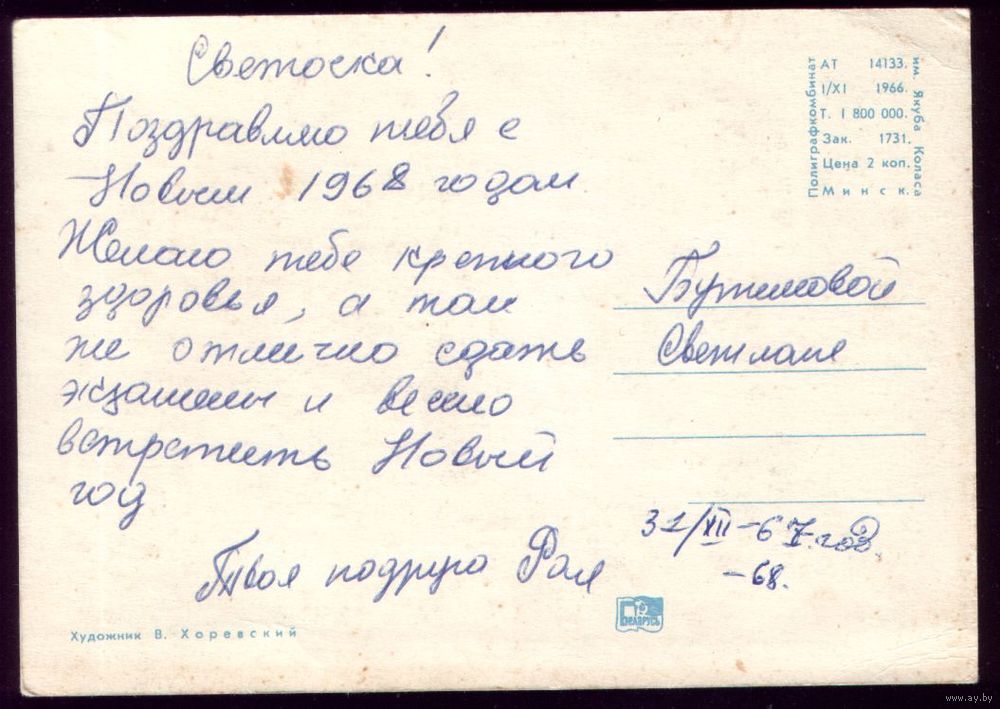 Светоска!
Поздравляю тебя с
Новым 1968 годом
Желаю тебе крепкого
здоровья, а так
же отлично сдать
экзамены и весело
встретить Новый
год
Твоя подруга Рая
Художник В. Хоревский
Полиграфкомбинат
АТ 14133.
I/XI 1966.
Т. 1 800 000.
Зак. 1731.
Цена 2 коп.
Минск.
им. Якуба Коласа
Светлане
31/XII-67 год.
-68.
БЕЛАРУСЬ
www.ay.by